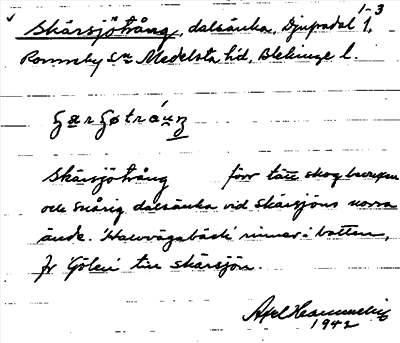 1-3
Skärsjötrång, dalsänka, Djupadal 1,
Ronneby sn Medelsta hd, Blekinge l.
Skärsjötrång förr tätt skogbevuxen
och snårig dalsänka vid Skärsjöns norra
ände. 'Halvvägabäck' rinner i botten,
fr 'Gölen' till Skärsjön.
Axel
1942